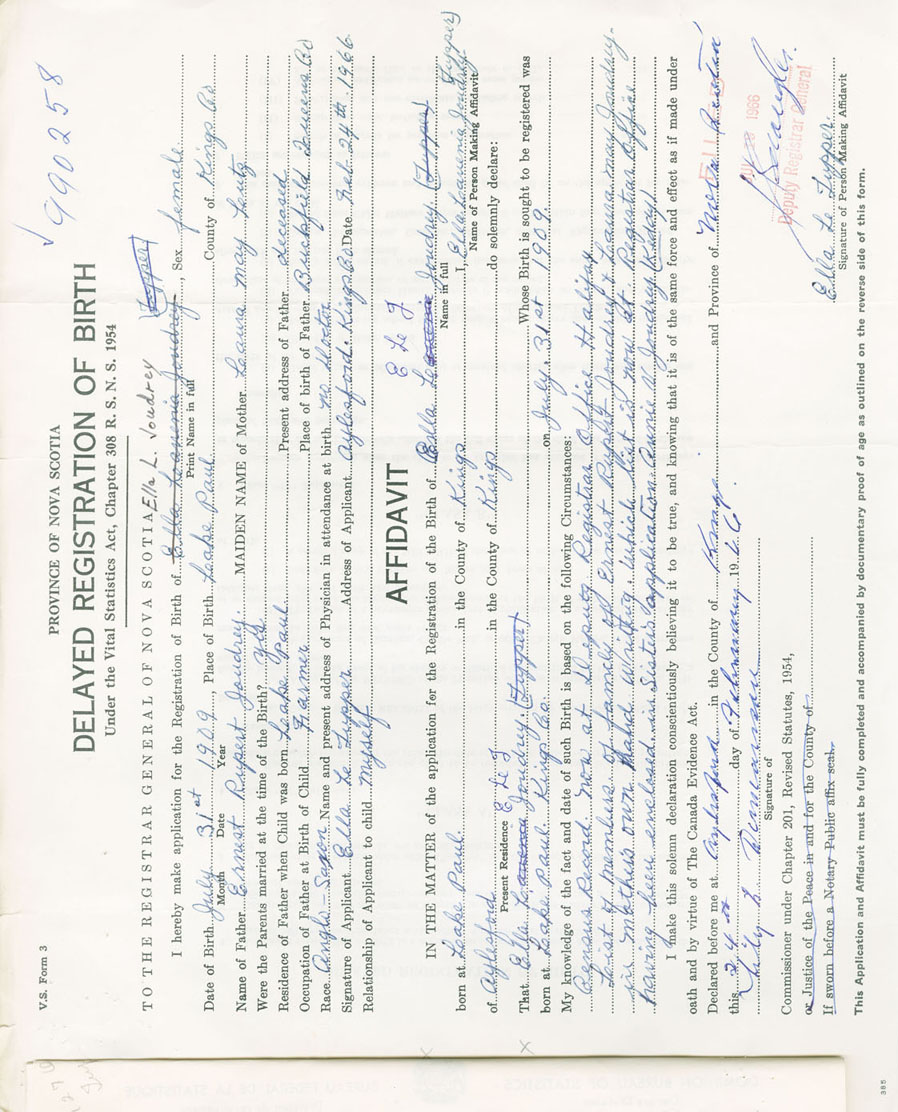 V.S. Form 3
990258
PROVINCE OF NOVA SCOTIA
DELAYED REGISTRATION OF BIRTH
Under the Vital Statistics Act, Chapter 308 R. S. N. S. 1954
TO THE REGISTRAR GENERAL OF NOVA SCOTIA Ella L. Joudrey
I hereby make application for the Registration of Birth of Ella Leaenia Joudrey (Tupper), Sex female
Print Name in full
Date of Birth July 31st 1909, Place of Birth Lake Paul County of Kings Co
Month Date Year
Name of Father Ernest Rupert Joudrey. MAIDEN NAME of Mother Leava may Lentz
Were the Parents married at the time of the Birth? yes
Residence of Father when Child was born Lake Paul Present address of Father deceased
Occupation of Father at Birth of Child Farmer Place of birth of Father Buckfield Queens Co
Race Anglo-Saxon Name and present address of Physician in attendance at birth no doctor
Signature of Applicant Ella Le Tupper Address of Applicant Aylesford. Kings Co Date Feb. 24th 1966
Relationship of Applicant to child Myself
AFFIDAVIT
E Le J
IN THE MATTER of the application for the Registration of the Birth of Ella Joudrey (Tupper)
Name in full
born at Lake Paul. in the County of Kings I, Ella Joudrey (Tupper)
Name of Person Making Affidavit
of Aylesford in the County of Kings do solemnly declare:
Present Residence E Le J
That Ella Joudrey (Tupper) Whose Birth is sought to be registered was
born at Lake Paul Kings Co. on July 31st 1909.
My knowledge of the fact and date of such Birth is based on the following Circumstances:
Census Record now at Deputy Registrar Office Halifax
List of members of family of Ernest Rupert Joudrey & Leava may Joudrey.
in Mothers own hand writing which list is now at Registrar Office
having been enclosed in Sister's application Annie V. Joudrey
I make this solemn declaration conscientiously believing it to be true, and knowing that it is of the same force and effect as if made under
oath and by virtue of The Canada Evidence Act.
Declared before me at Aylesford in the County of Kings and Province of Nova Scotia
this 24 day of February 1966
Signature of
Commissioner under Chapter 201, Revised Statutes, 1954,
or Justice of the Peace in and for the County of
If sworn before a Notary Public affix seal.
FILED
1966
Deputy Registrar General
Ella Le Tupper.
Signature of Person Making Affidavit
This Application and Affidavit must be fully completed and accompanied by documentary proof of age as outlined on the reverse side of this form.
385